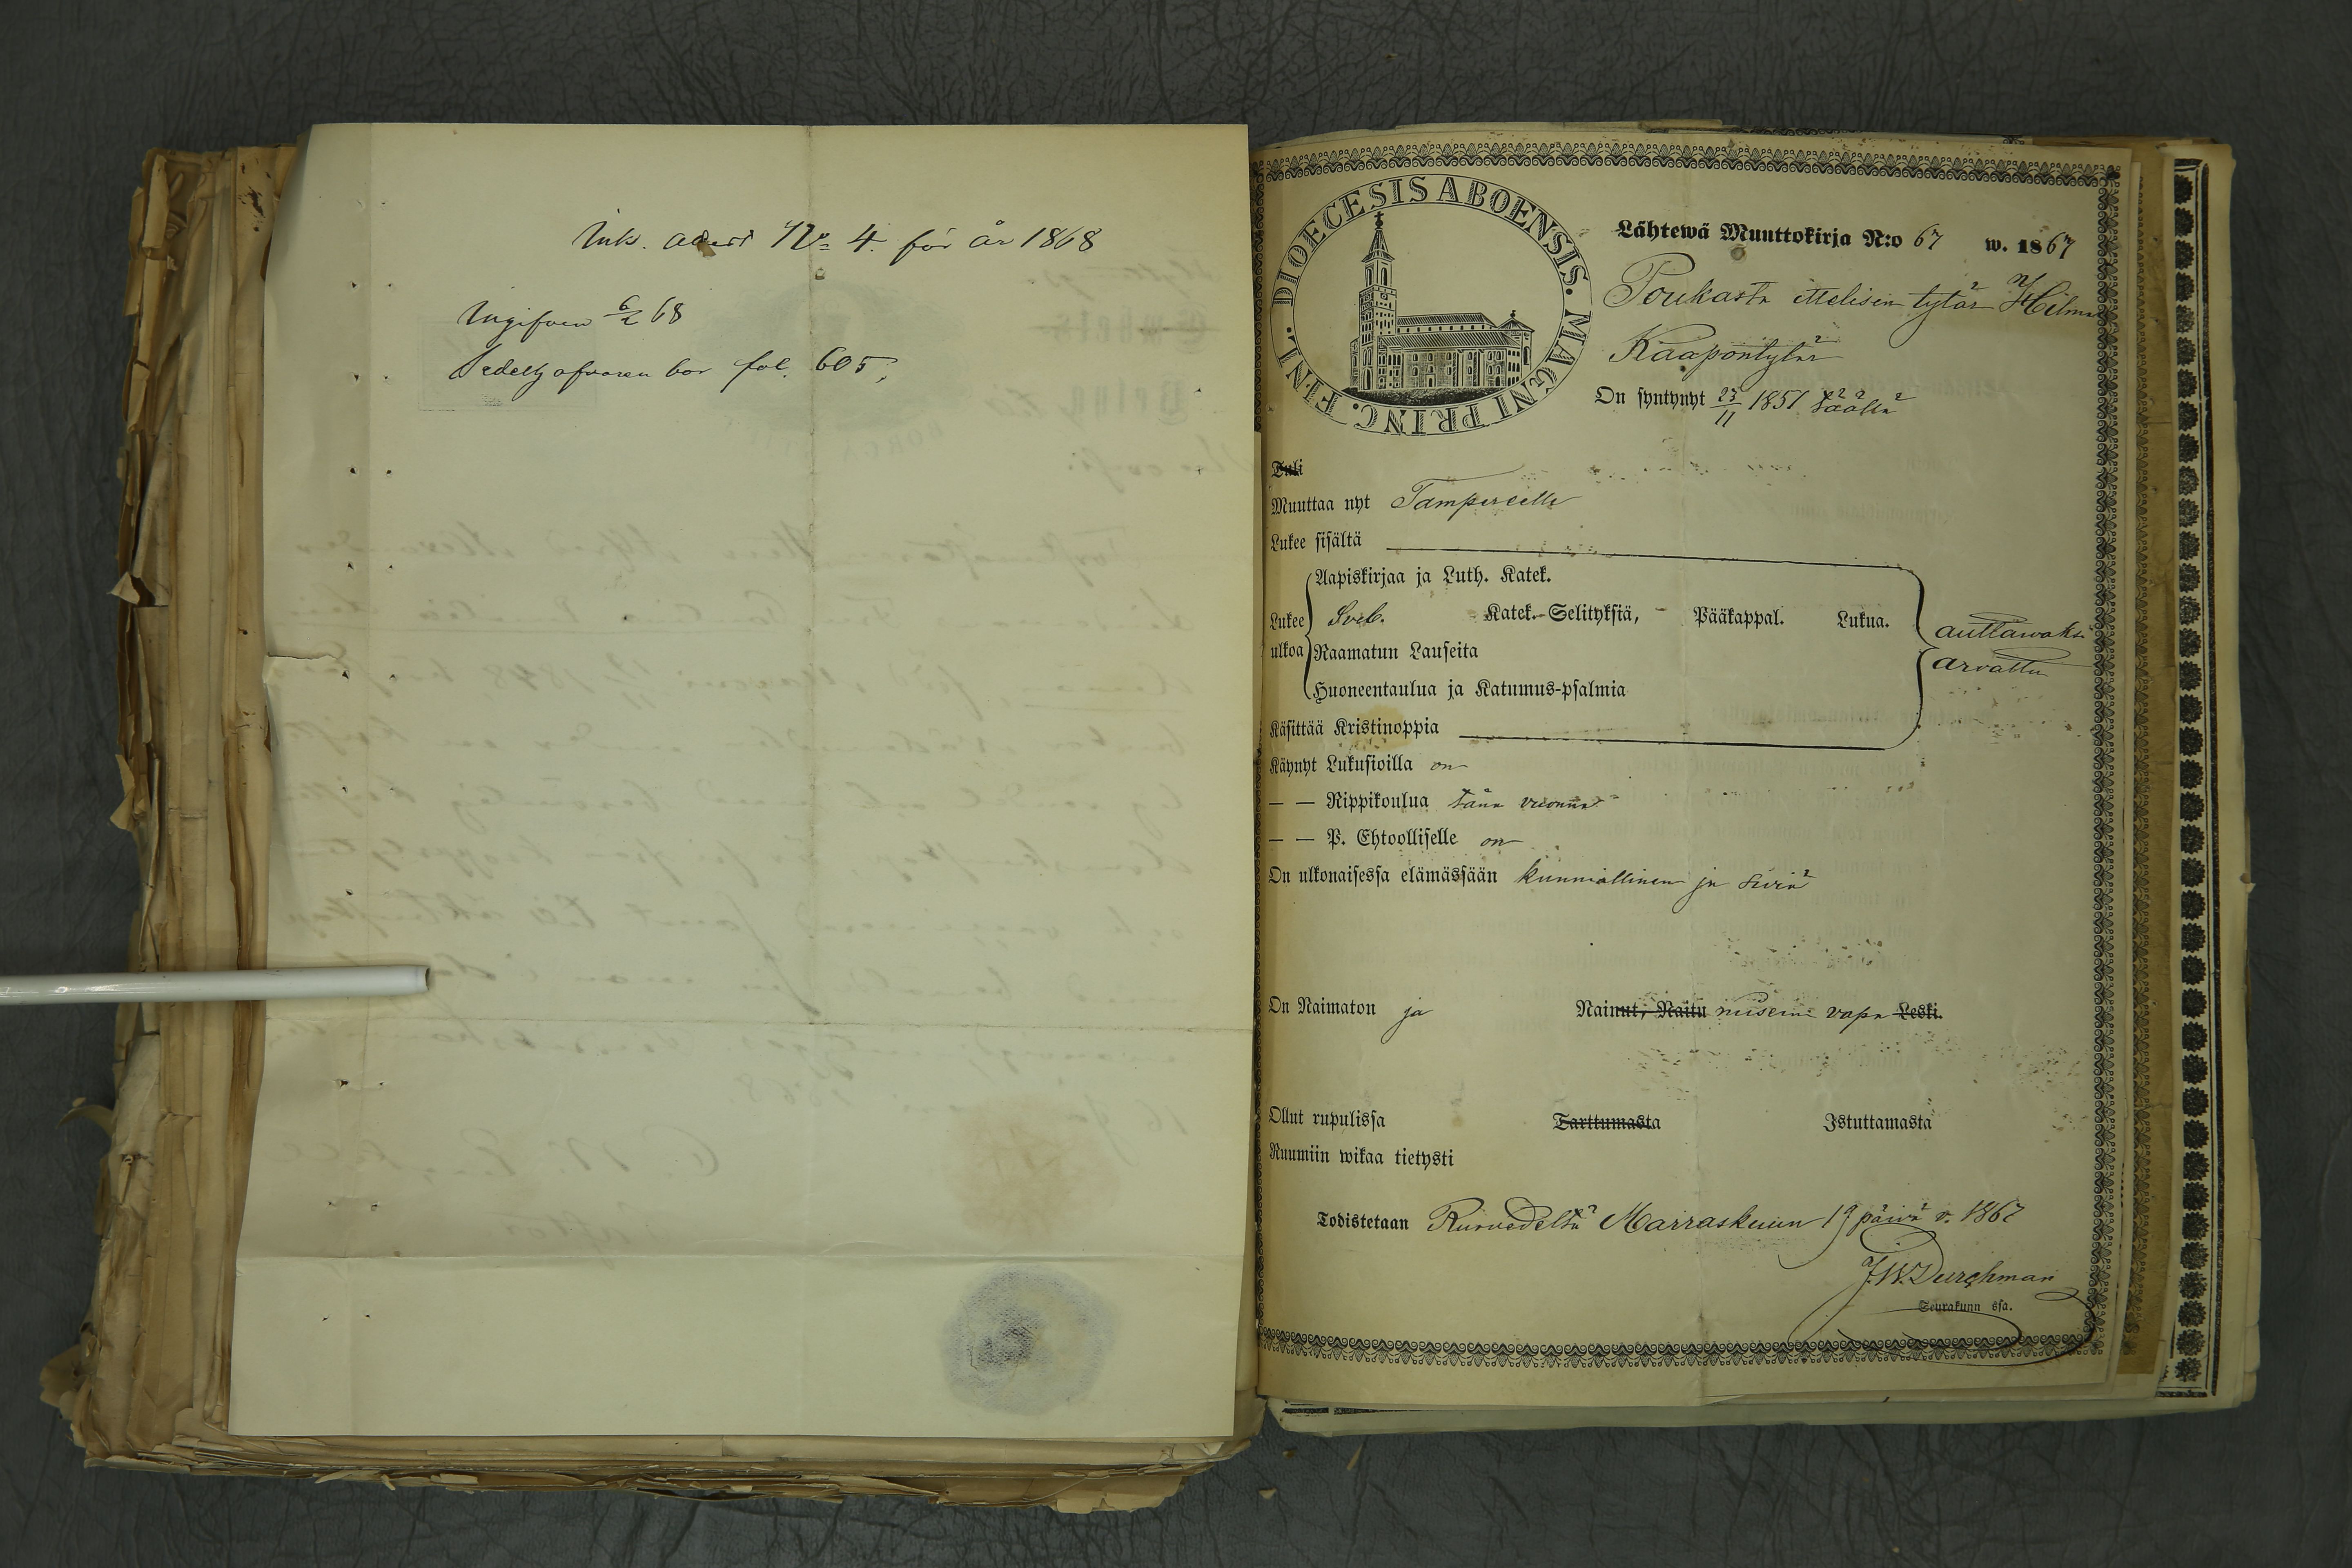 Ink. attest No 4. för år 1868
Ingifven 6/2 68
Sedelgifvaren bor fol. 605.
DIOECESIS ABOENSIS. MAGNI PRINC. FINL.
Lähtewä Muuttokirja N:o 67 w. 1867
ittelisen tytär Hilma
Kaapontytär
On syntynyt 23/11 1851 täällä
Tuli
Muuttaa nyt Tampereelle
Lukee sisältä
Aapiskirjaa ja Luth. Katek.
Lukee Sveb. Katek.-Selityksiä, Pääkappal. Lukua. auttawaksi
ulkoa Raamatun Lauseita arvattu
Huoneentaulua ja Katumus-psalmia
Käsittää Kristinoppia
Käynyt Lukusioilla on
— — Rippikoulua tänä vuonna
— — P. Ehtoolliselle on
On ulkonaisessa elämässään kunniallinen ja siviä
On Naimaton ja Nainut, Naitu vapa Leski.
Ollut rupulissa Tarttumasta Istuttamasta
Ruumiin wikaa tietysti
Todistetaan Ruovedeltä Marraskuun 19 päivä v. 1867
F.W. Durchman
Seurakunn ssa.